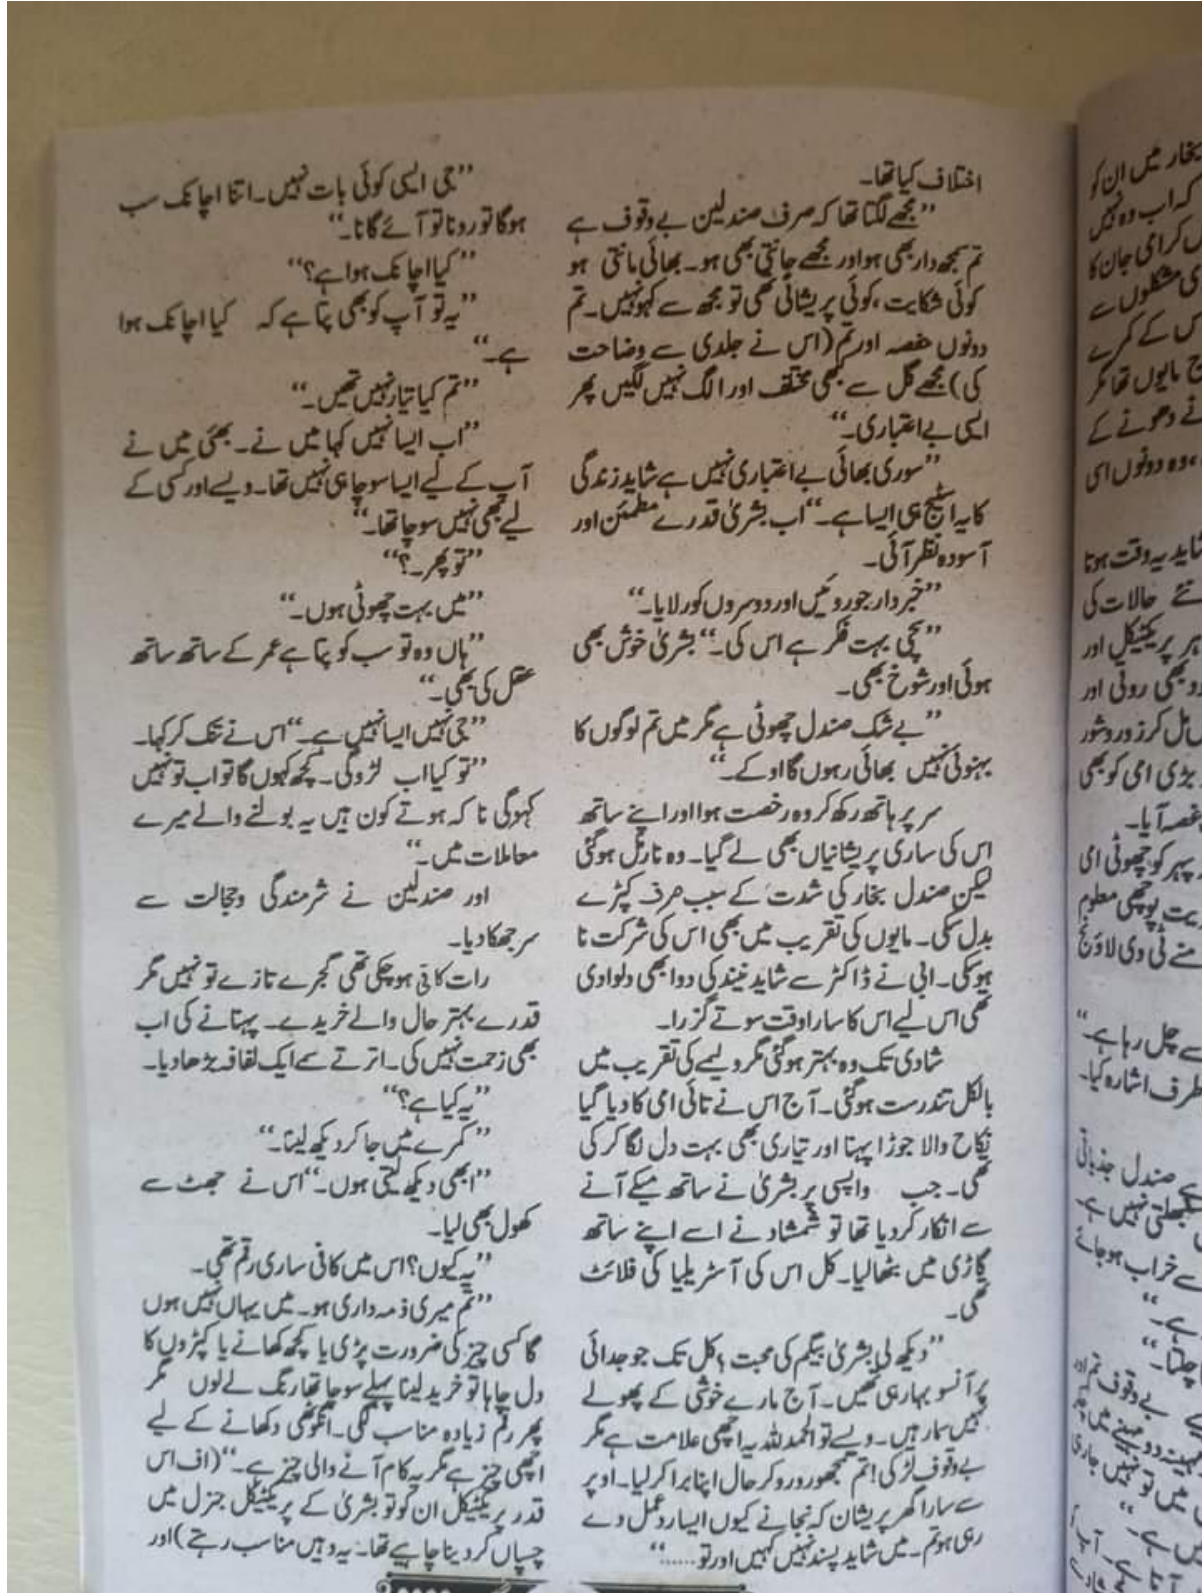 اختلاف کیا تھا۔
”مجھے لگتا تھا کہ صرف صندلین بے وقوف ہے
تم سمجھ دار بھی ہو اور مجھے جانتی بھی ہو۔ بھائی مانتی ہو
کوئی شکایت، کوئی پریشانی تھی تو مجھ سے کہو نہیں۔ تم
دونوں حفصہ اور تم (اس نے جلدی سے وضاحت
کی) مجھے گل سے کبھی مختلف اور الگ نہیں لگیں پھر
ایسی بے اعتباری۔“
”سوری بھائی بے اعتباری نہیں ہے شاید زندگی
کا یہ اسٹیج ہی ایسا ہے۔“ اب بشریٰ قدرے مطمئن اور
آسودہ نظر آئی۔
”خبردار جو روئیں اور دوسروں کو رلایا۔“
”بچی بہت فکر ہے اس کی۔“ بشریٰ خوش بھی
ہوئی اور شوخ بھی۔
”بے شک صندل چھوٹی ہے مگر میں تم لوگوں کا
بہنوئی نہیں بھائی رہوں گا اوکے۔“
سر پر ہاتھ رکھ کر وہ رخصت ہوا اور اپنے ساتھ
اس کی ساری پریشانیاں بھی لے گیا۔ وہ نارمل ہوگئی
لیکن صندل بخار کی شدت کے سبب صرف کپڑے
بدل سکی۔ مایوں کی تقریب میں بھی اس کی شرکت نا
ہوسکی۔ ابی نے ڈاکٹر سے شاید نیند کی دوا بھی دلوادی
تھی اس لیے اس کا سارا وقت سوتے گزرا۔
شادی تک وہ بہتر ہوگئی مگر ولیمے کی تقریب میں
بالکل تندرست ہوگئی۔ آج اس نے تائی امی کا دیا گیا
نکاح والا جوڑا پہنا اور تیاری بھی بہت دل لگا کر کی
تھی۔ جب واپسی پر بشریٰ نے ساتھ میکے آنے
سے انکار کردیا تھا تو شمشاد نے اسے اپنے ساتھ
گاڑی میں بٹھالیا۔ کل اس کی آسٹریلیا کی فلائٹ
تھی۔
”دیکھ لی بشریٰ بیگم کی محبت؟ کل تک جو جدائی
پر آنسو بہا رہی تھیں۔ آج مارے خوشی کے پھولے
نہیں سما رہیں۔ ویسے تو الحمدللہ یہ اچھی علامت ہے مگر
بے وقوف لڑکی! تم سمجھو رو رو کر حال اپنا برا کرلیا۔ اوپر
سے سارا گھر پریشان کہ نجانے کیوں ایسا ردعمل دے
رہی ہو تم۔ میں شاید پسند نہیں کہیں اور تو......“
”جی ایسی کوئی بات نہیں۔ اتنا اچانک سب
ہوگا تو رونا تو آئے گا نا۔“
”کیا اچانک ہوا ہے؟“
”یہ تو آپ کو بھی پتا ہے کہ کیا اچانک ہوا
ہے۔“
”تم کیا تیار نہیں تھیں۔“
”اب ایسا نہیں کہا میں نے۔ بھئی میں نے
آپ کے لیے ایسا سوچا ہی نہیں تھا۔ ویسے اور کسی کے
لیے بھی نہیں سوچا تھا۔“
”تو پھر۔؟“
”میں بہت چھوٹی ہوں۔“
”ہاں وہ تو سب کو پتا ہے عمر کے ساتھ ساتھ
عقل کی بھی۔“
”جی نہیں ایسا نہیں ہے۔“ اس نے تنک کر کہا۔
”تو کیا اب لڑو گی۔ کچھ کہوں گا تو اب تو نہیں
کہو گی نا کہ ہوتے کون ہیں یہ بولنے والے میرے
معاملات میں۔“
اور صندلین نے شرمندگی و خجالت سے
سر جھکا دیا۔
رات کافی ہوچکی تھی گجرے تازے تو نہیں مگر
قدرے بہتر حال والے خریدے۔ پہنانے کی اب
بھی زحمت نہیں کی۔ اترتے سمے ایک لفافہ بڑھا دیا۔
”یہ کیا ہے؟“
”کمرے میں جا کر دیکھ لینا۔“
”ابھی دیکھ لیتی ہوں۔“ اس نے جھٹ سے
کھول بھی لیا۔
”یہ کیوں؟ اس میں کافی ساری رقم تھی۔
”تم میری ذمہ داری ہو۔ میں یہاں نہیں ہوں
گا کسی چیز کی ضرورت پڑی یا کچھ کھانے یا کپڑوں کا
دل چاہا تو خرید لینا پہلے سوچا تھا رنگ لے لوں مگر
پھر رقم زیادہ مناسب لگی۔ انگوٹھی دکھانے کے لیے
اچھی چیز ہے مگر یہ کام آنے والی چیز ہے۔“ (اف اس
قدر پریکٹیکل ان کو تو بشریٰ کے پریکٹیکل جنرل میں
چسپاں کردینا چاہیے تھا۔ یہ وہیں مناسب رہتے) اور